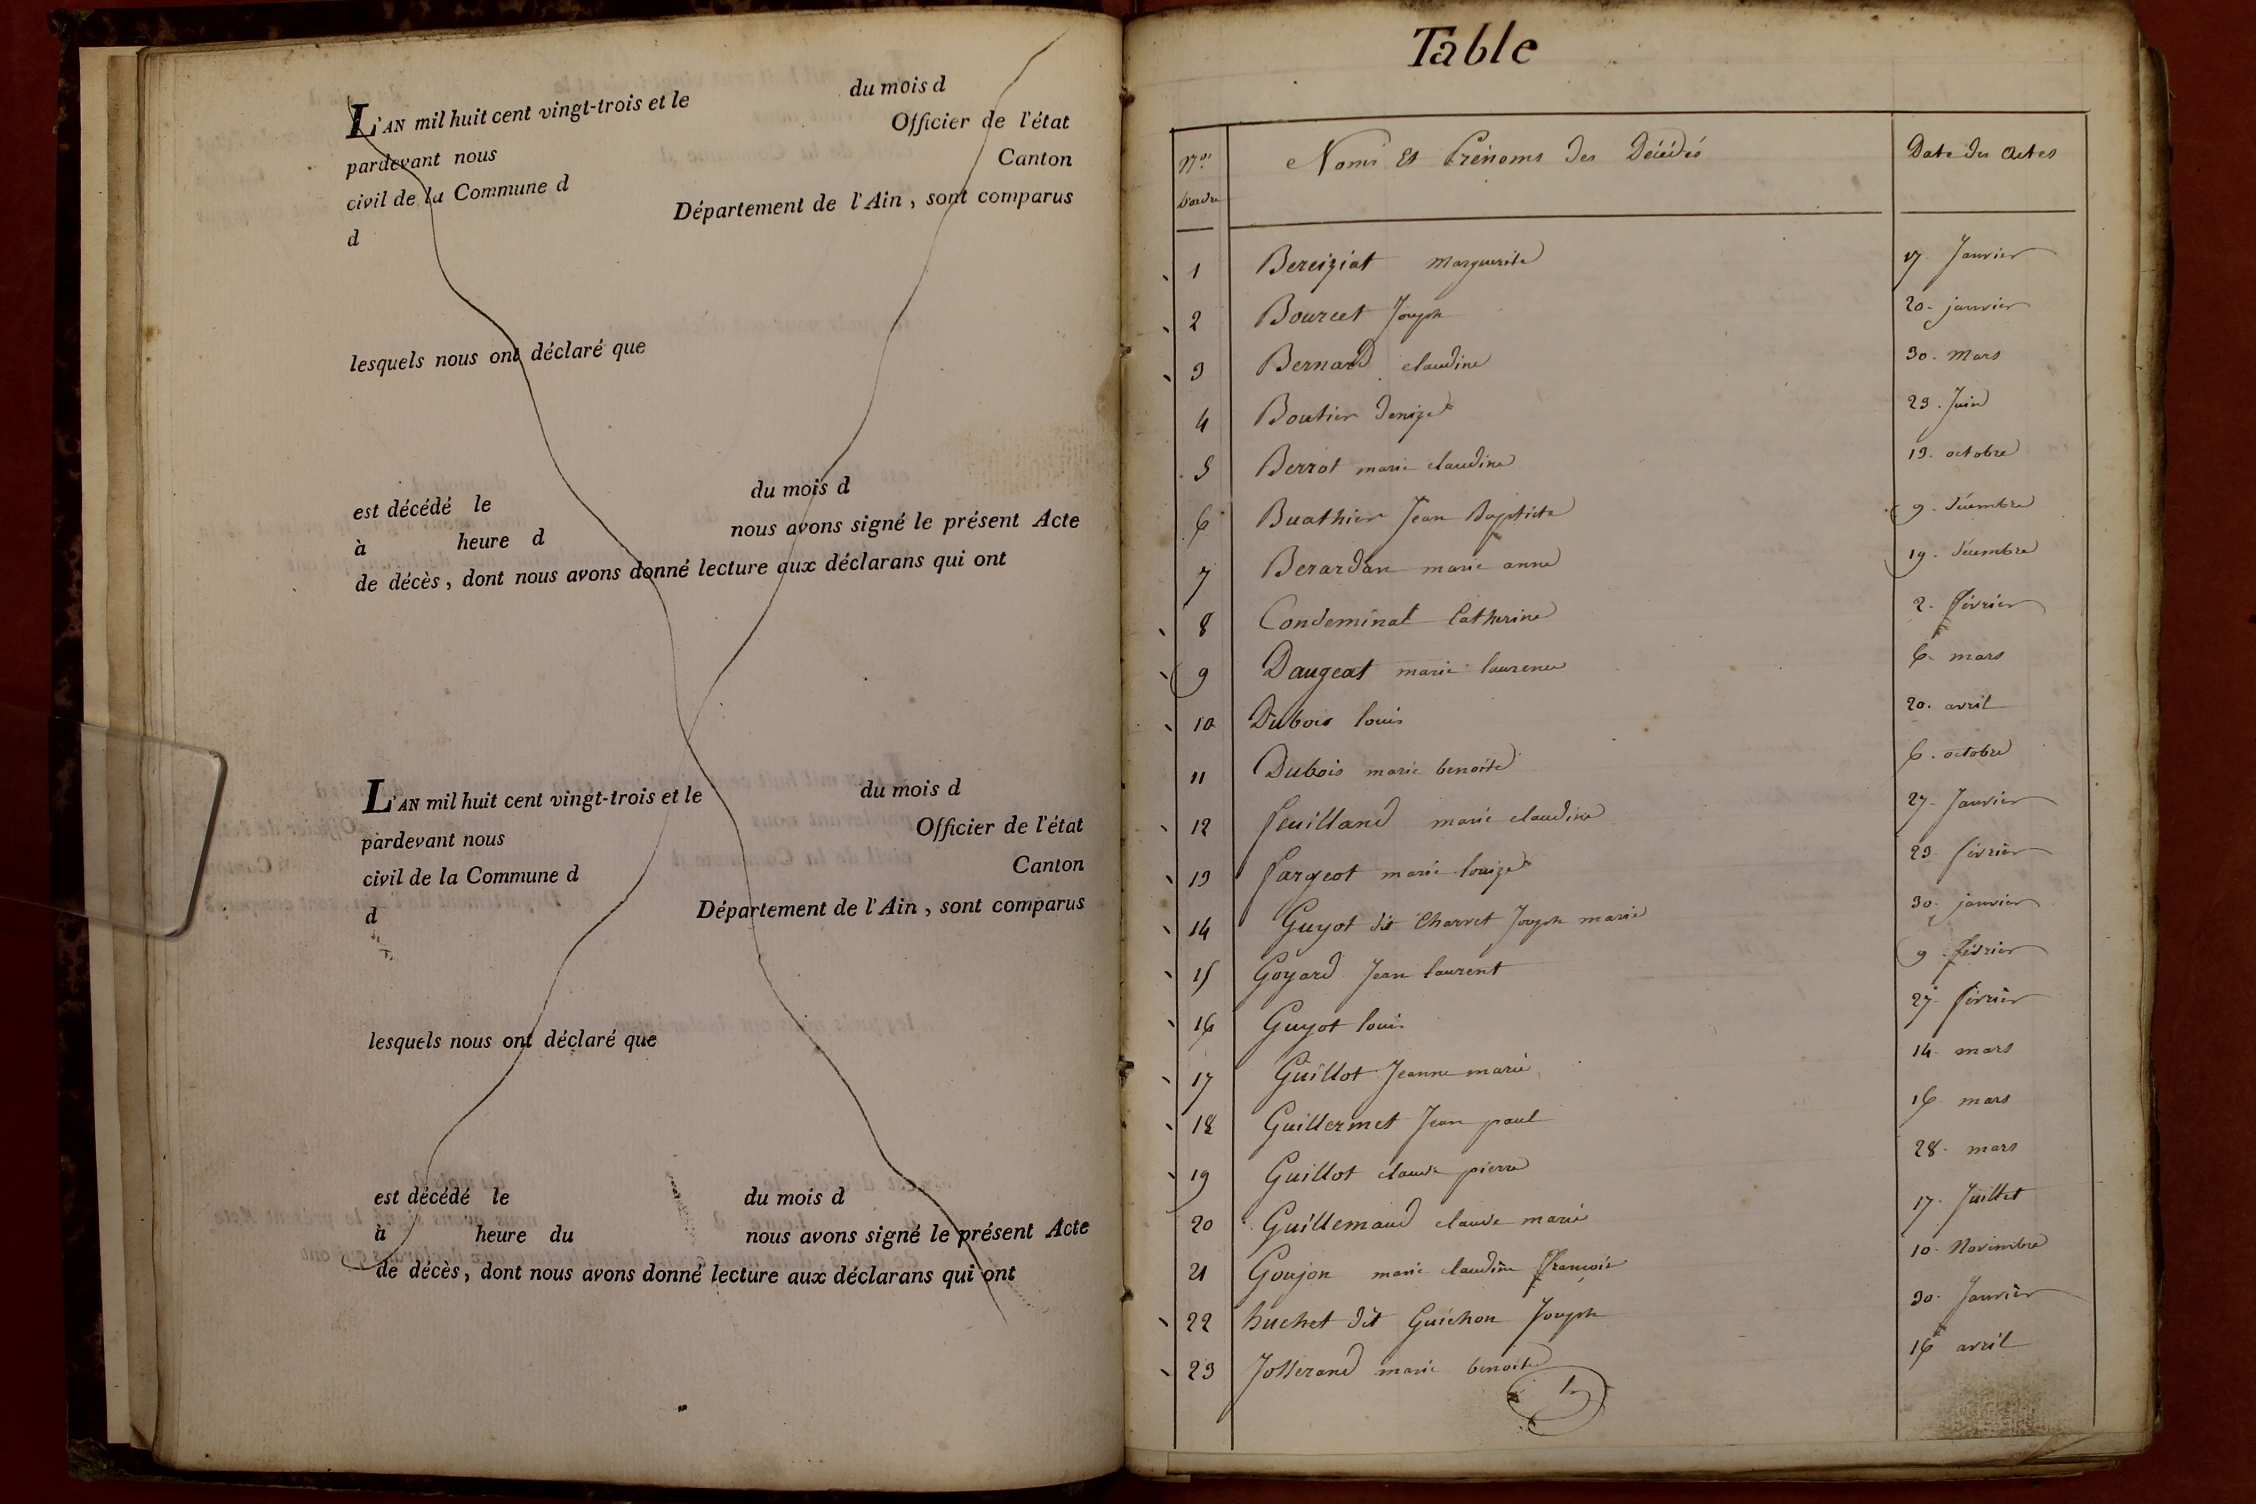 L'AN mil huit cent vingt-trois et le du mois d
pardevant nous Officier de l'état
civil de la Commune d Canton
d Département de l'Ain, sont comparus
lesquels nous ont déclaré que
est décédé le du mois d
à heure d nous avons signé le présent Acte
de décès, dont nous avons donné lecture aux déclarans qui ont
L'AN mil huit cent vingt-trois et le du mois d
pardevant nous Officier de l'état
civil de la Commune d Canton
d Département de l'Ain, sont comparus
lesquels nous ont déclaré que
est décédé le du mois d
à heure du nous avons signé le présent Acte
de décès, dont nous avons donné lecture aux déclarans qui ont
Table
Nos D'ordre Noms Et Prénoms des Décédés Date des Actes
1 Bereiziat marguerite 17 Janvier
2 Bourcet Joseph 20. janvier
3 Bernard claudine 30. Mars
4 Boutier Denize 23. Juin
5 Berrot marie claudine 13. octobre
6 Buathier Jean Baptiste 9. décembre
7 Berardan marie anne 19. décembre
8 Condeminal Catherine 2. février
9 Daugeat marie laurence 6. mars
10 Dubois louis 20. avril
11 Dubois marie benoite 6. octobre
12 feuilland marie claudine 27. Janvier
13 fargeot marie louize 23. février
14 Guyot dit Charvet Joseph marie 30. janvier
15 Goyard Jean laurent 9. février
16 Guyot louis 27. février
17 Guillot Jeanne marie 14. mars
18 Guillermet Jean paul 16 mars
19 Guillot claude pierre 28. mars
20 Guillemaud claude marie 17. Juillet
21 Goujon marie claudine françoise 10. Novembre
22 huchet dit Guichon Joseph 30. Janvier
23 Josserand marie benoite 16 avril